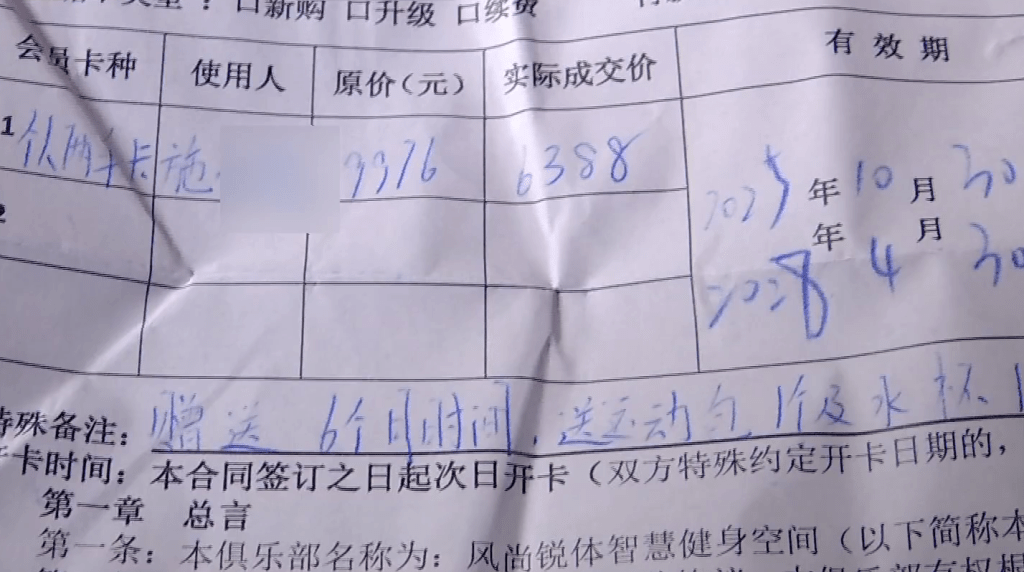 ：口新购 口升级 口续费
会员卡种 使用人 原价（元） 实际成交价 有效期
1 两年卡 施 9976 6388 2025年10月30
2 年 月
2028 4 30
特殊备注：赠送6个月时间，送运动包1个及水杯1
开卡时间：本合同签订之日起次日开卡（双方特殊约定开卡日期的，
第一章 总言
第一条：本俱乐部名称为：风尚锐体智慧健身空间（以下简称本